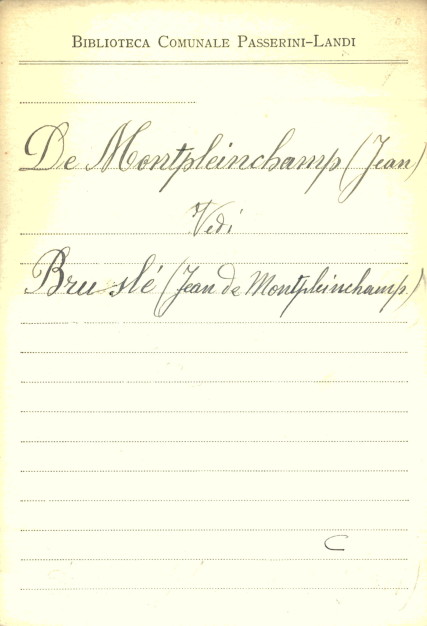 BIBLIOTECA COMUNALE PASSERINI-LANDI
De Montpleinchamp (Jean)
Vedi
Bruslé (Jean de Montpleinchamp)
C